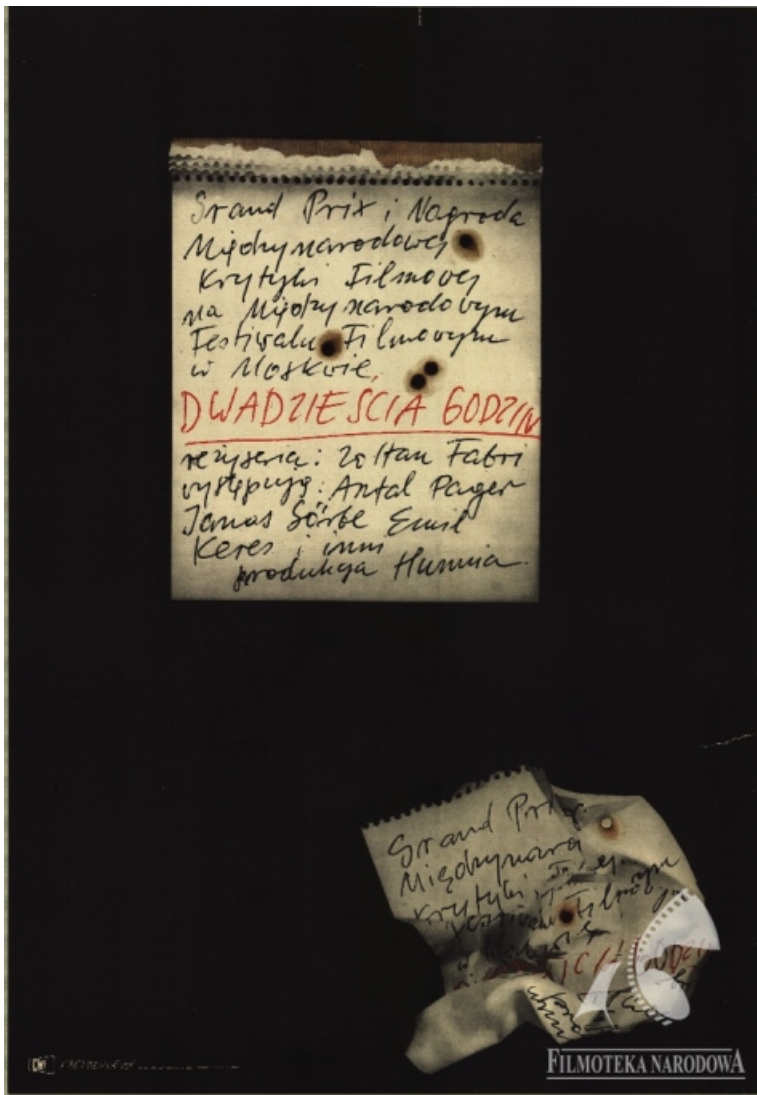 Grand Prix i Nagroda
Międzynarodowej
Krytyki Filmowej
na Międzynarodowym
Festiwalu Filmowym
w Moskwie
DWADZIEŚCIA GODZIN
reżyseria: Zoltan Fabri
występują: Antal Pager
Janos Görbe Emil
Keres i inni
produkcja Hunnia
Grand Prix
Międzynaro
Krytyki
Festiwalu Filmowym
FILMOTEKA NARODOWA